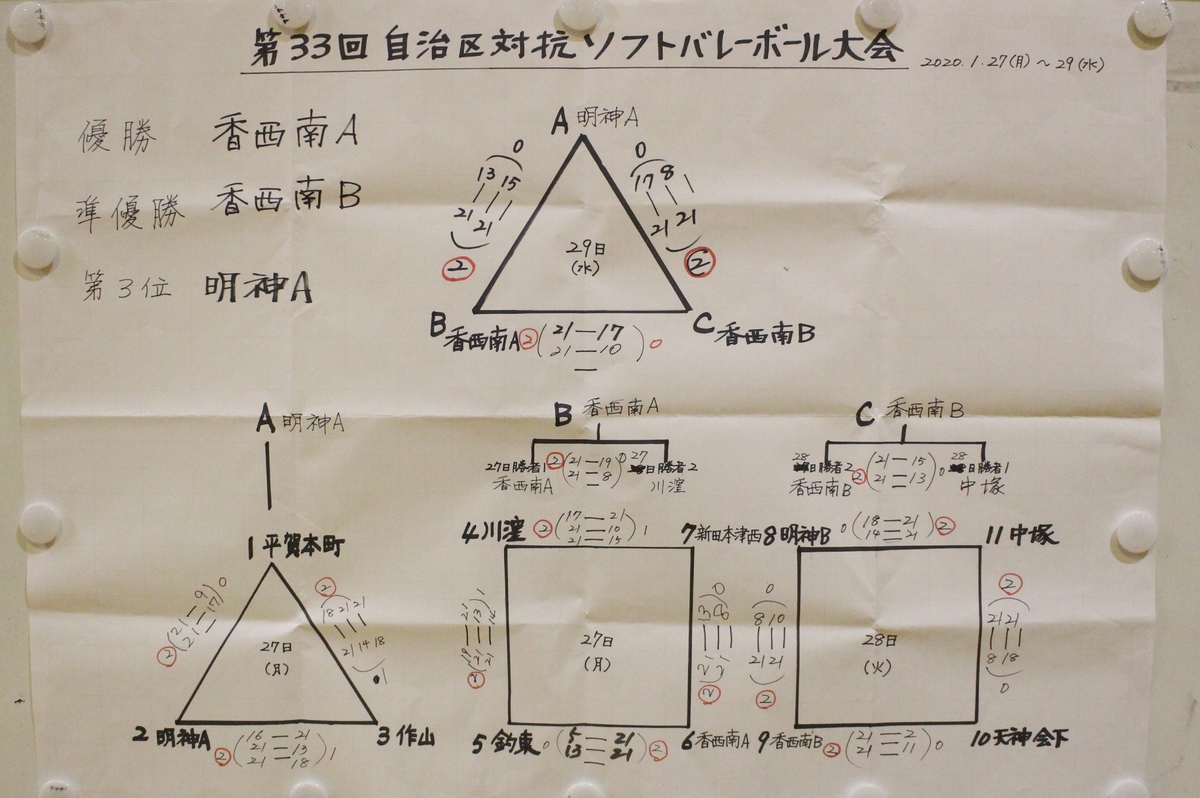 第33回 自治区対抗 ソフトバレーボール大会
2020.1.27(月)～29(水)
優勝 香西南A
準優勝 香西南B
第3位 明神A
A 明神A
0 0
13 15
17 8
21 21
21 21
② ②
29日
(水)
B 香西南A ② 21—17 0
21—10
C 香西南B
A 明神A
B 香西南A
C 香西南B
27日勝者1 ② 21—19 0 27日勝者2
香西南A 21—8 川窪
28日勝者2 ② 21—15 0 28日勝者1
香西南B 21—13 中塚
1 平賀本町
21—9 0
② 21—17
②
18 21 21
21 14 18
1
27日
(月)
2 明神A ② 16—21 1 3 作山
21—13
21—18
4 川窪 ② 17—21 1 7 新田本津西
21—10
21—15
27日
(月)
0
②
5 釣東 0 5—21 ② 6 香西南A
13—21
8 明神B 0 18—21 ② 11 中塚
14—21
0
8 10
21 21
②
28日
(火)
②
21 21
8 18
0
9 香西南B ② 21—2 0 10 天神会下
21—11